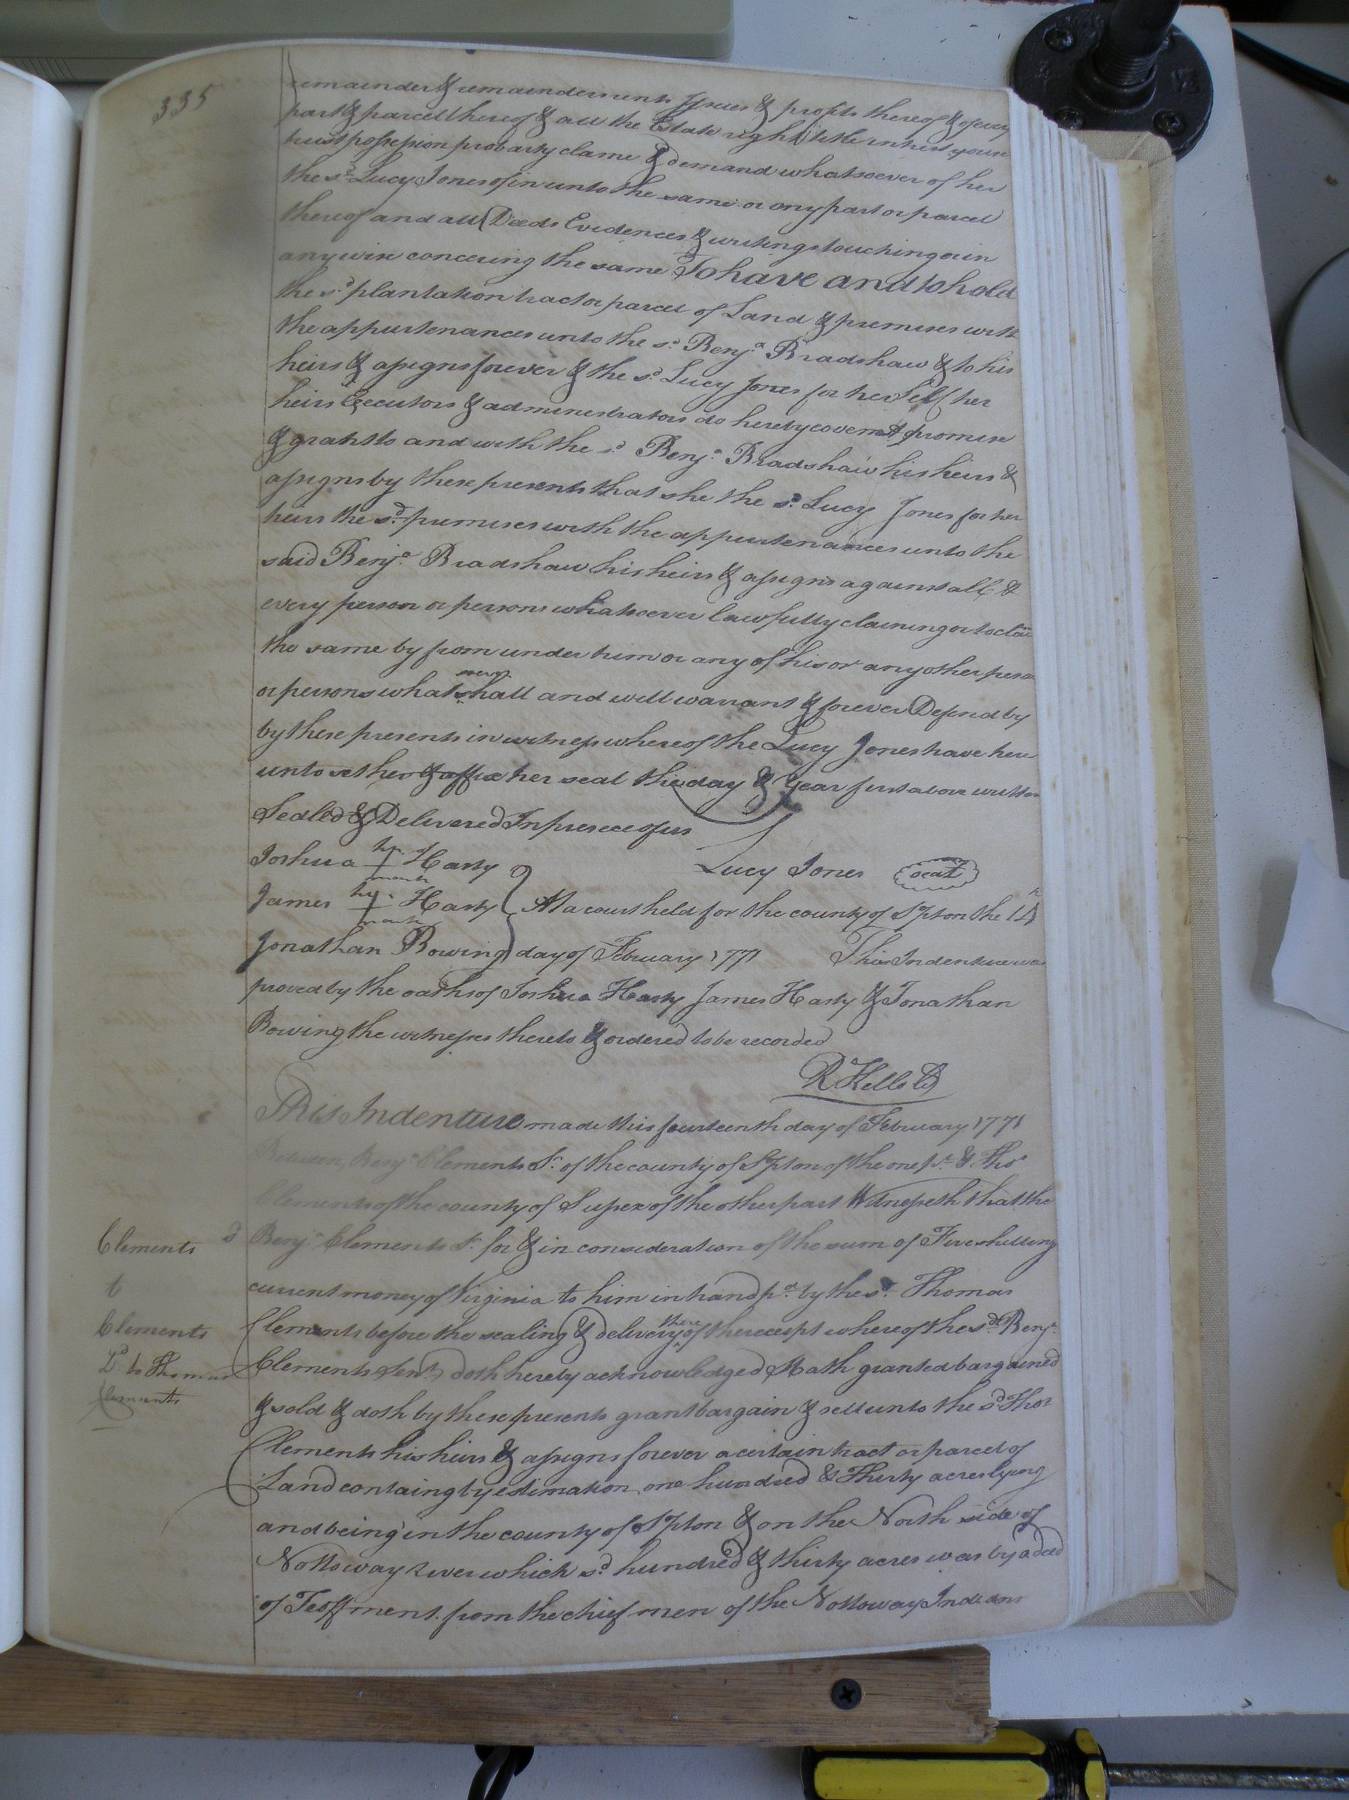 335
remainder & remainders rents Issues & profits thereof & of every
part & parcel thereof & all the Estate right title interest
trust possession proparty clame & demand whatsoever of her
the sd. Lucy Jones of in unto the same or any part or parcel
thereof and all Deeds Evidences & writings touching or in
any wise concering the same To have and to hold
the sd. plantation tract or parcel of Land & premises with
the appurtenances unto the sd. Benja. Bradshaw & to his
heirs & assigns forever & the sd. Lucy Jones for her Self her
heirs Executors & administrators do hereby covernt & promise
& grant to and with the sd. Benja. Bradshaw his heirs &
assigns by these presents that she the sd. Lucy Jones for her
heirs the sd. premises with the appurtenances unto the
said Benja. Bradshaw his heirs & assigns against all &
every person or persons whatsoever lawfully claiming or to claim
the same by from under him or any of his or any other person
or persons whatsoever shall and will warrant & forever Defend by
by these presents in witness whereof the Lucy Jones have here
unto set her & affix her seal the day & Year first above written
Sealed & Delivered In presece of us
Joshua his + mark Harty Lucy Jones seal
James his + mark Harty At a court held for the county of S'pton the 14th
Jonathan Bowing day of February 1771 This Indenture was
proved by the oaths of Joshua Harty James Harty & Jonathan
Bowing the witnesses thereto & ordered to be recorded
R Kello
This Indenture made this fourteenth day of February 1771
Between Benja. Clements Sr. of the county of S'pton of the one pt. & Thos
Clements of the county of Sussex of the other part Witnesseth that the
sd Benja. Clements Sr. for & in consideration of the sum of Five shilling
current money of Virginia to him in hand pd. by the sd. Thomas
Clements before the sealing & delivery there of the receipt where of the sd. Benja.
Clements Senr. doth hereby acknowledged Hath granted bargained
& sold & doth by these presents grant bargain & sell unto the sd Thos
Clements his heirs & assigns forever a certain tract or parcel of
Land containg by estimation one hundred & Thirty acres lying
and being in the county of S'pton & on the North side of
Nottoway River which sd. hundred & thirty acres was by a deed
of Feoffment from the chief men of the Nottoway Indians
Clements
to
Clements
Dd. to Thomas
Clements